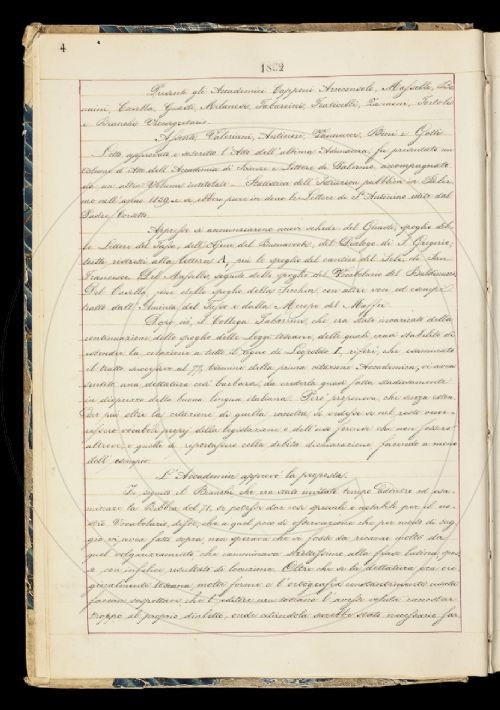 4
1852
Presenti gli Accademici Capponi Arciconsolo, Masselli, 
Casella, Guasti, Milanesi, Tabarrini, Zannoni,
e Bianchi Vicesegretario.
Assenti Valeriani, Antinori, Vannucci, Bini e Gotti
Letto approvato e sottoscritto l'Atto dell'ultima Adunanza, fu presentato un
volume d'Atti dell'Accademia di Scienze e Lettere di Palermo, accompagnato
da un altro Volume intitolato Statistica dell'Istruzion pubblica in Paler-
mo nell'anno 1859 e si ebbero pure in dono le Lettere di S. Antonino edite dal
Padre Corsetto.
Appresso si annunciarono nuove schede del Guasti, spoglio del-
le Lettere del Tasso, dell'Ajone del Buonarroti, del Dialogo di S. Gregorio,
tratte ristretti alla lettera A, più lo spoglio del cantico del Sole di San
Francesco. Del Masselli, seguito dello spoglio del Vocabolario del Baldinucci
Del Casella, fine dello spoglio della con altre voci ed esempi
tratti dall'Aminta del Tasso e dalla Merope del Maffei
Dopo ciò, il Collega Tabarrini, che era stato incaricato della
continuazione dello spoglio delle Leggi toscane, delle quali erasi stabilito di
estendere la citazione a tutto il regno di Leopoldo I, riferì, che esaminato
il tratto successivo al 75, termine della prima citazione Accademica, vi aveva
sentito una dettatura così barbara, da crederla quasi fatta studiatamente
in disprezzo della buona lingua italiana. Però proponeva che senza esten-
der più oltre la citazione di quella raccolta, si vedesse se nel resto vi
fossero vocaboli proprj della legislazione e dell'uso forense che non fossero
altrove, e quelli si riportassero colla debita dichiarazione facendo a meno
dell'esempio.
L'Accademia approvò la proposta.
In seguito il Bianchi che era stato invitato tempo addietro ad esa-
minare la Bibbia del 71, se potesse dar voci speciali e notabili per il no-
stro Vocabolario, disse, che a quel poco di osservazione che per modo di sag-
gio vi aveva fatto sopra, non sperava che vi fosse da ricavar molto da
quel volgarizzamento che camminava strettissimo alla frase latina, spes-
so con infelice resultato di locuzione. Oltre che se la dettatura era ori-
ginalmente toscana, molte forme e l'ortografia constantemente usata
faceva sospettare che l'editore un l'avesse voluta raccostar
troppo al proprio dialetto, onde citandola sarebbe stato necessario far